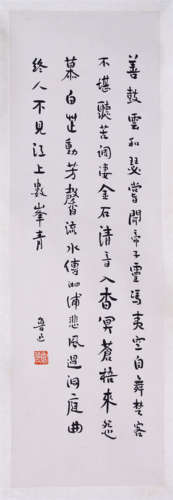 善鼓雲和瑟嘗聞帝子靈馮夷空自舞楚客
不堪聽苦調凄金石清音入杳冥蒼梧來怨
慕白芷動芳馨流水傳湘浦悲風過洞庭曲
終人不見江上數峯青
魯迅